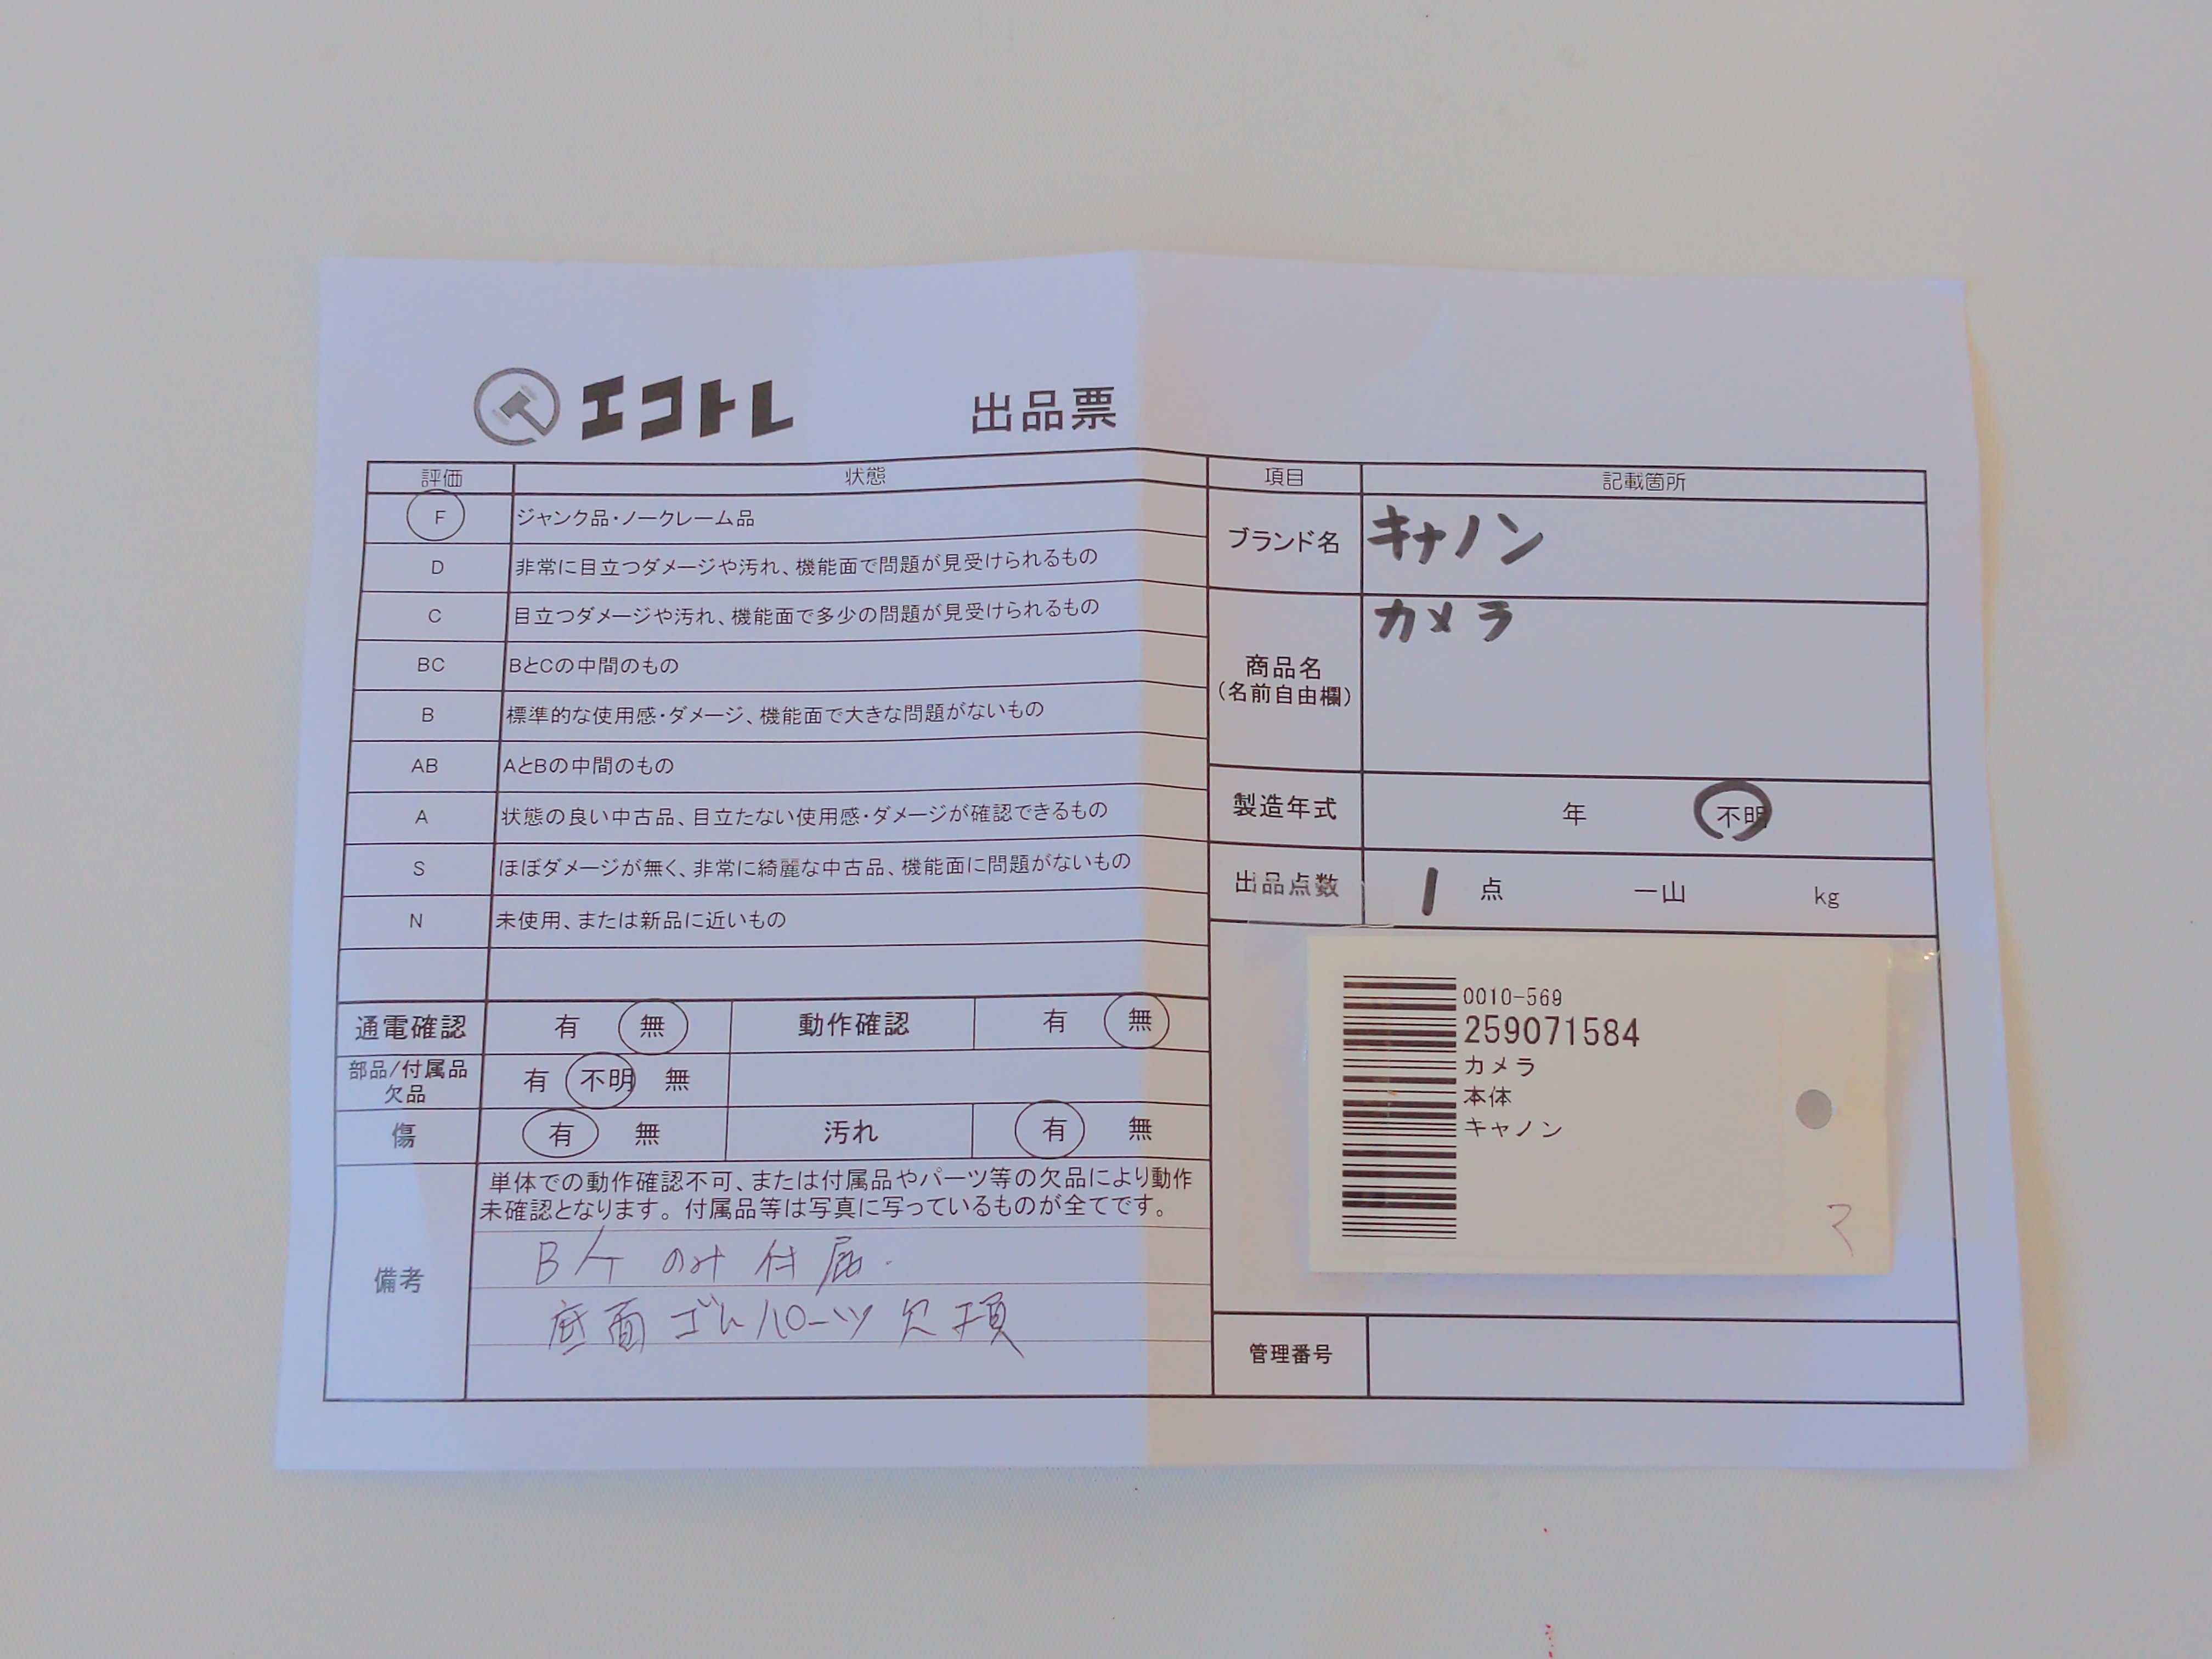 エコトレ 出品票
評価 状態
F ジャンク品・ノークレーム品
D 非常に目立つダメージや汚れ、機能面で問題が見受けられるもの
C 目立つダメージや汚れ、機能面で多少の問題が見受けられるもの
BC BとCの中間のもの
B 標準的な使用感・ダメージ、機能面で大きな問題がないもの
AB AとBの中間のもの
A 状態の良い中古品、目立たない使用感・ダメージが確認できるもの
S ほぼダメージが無く、非常に綺麗な中古品、機能面に問題がないもの
N 未使用、または新品に近いもの
通電確認 有 無 動作確認 有 無
部品/付属品
欠品
有 不明 無
傷 有 無 汚れ 有 無
備考
単体での動作確認不可、または付属品やパーツ等の欠品により動作
未確認となります。付属品等は写真に写っているものが全てです。
のみ付属.
底面ゴムパーツ欠損
項目 記載箇所
ブランド名 キャノン
商品名
(名前自由欄)
カメラ
製造年式 年 不明
出品点数 1 点 一山 kg
0010-569
259071584
カメラ
本体
キャノン
管理番号